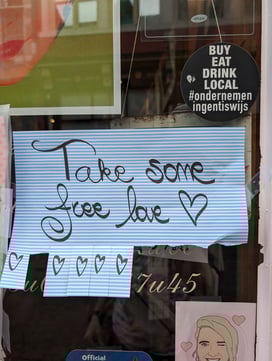 BUY
EAT
DRINK
LOCAL
#ondernemen
ingentiswijs
Take some
free love ♡
7u45
Official